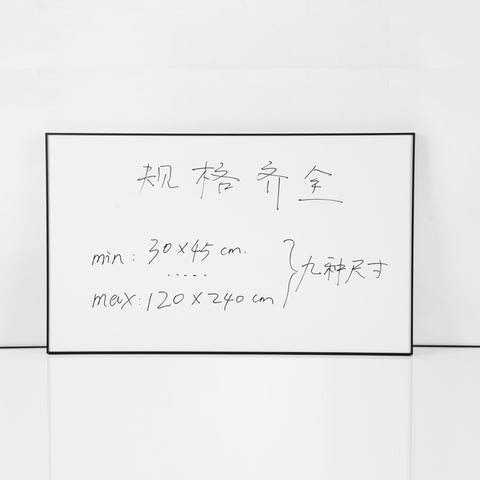 规格齐全
min: 30×45 cm.
.....
max: 120×240 cm
九种尺寸